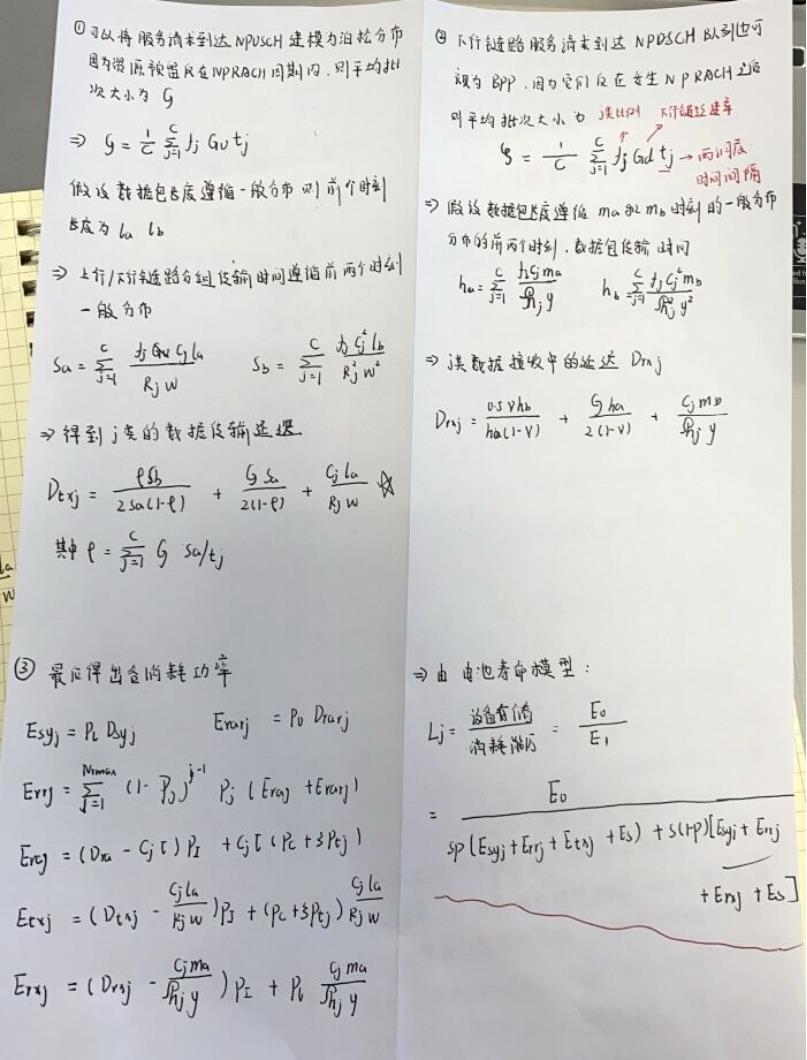 ① 可以将服务请求到达NPUSCH建模为泊松分布
因为资源预留只在NPRACH周期内,则平均批
次大小为 G
⇒ G = 1/C Σ_{j=1}^{C} fj Gu tj
假设数据包长度遵循一般分布 则前个时刻
长度为 la lb
⇒ 上行/下行链路分组传输时间遵循前两个时刻
一般分布
Sa = Σ_{j=1}^{C} (fj Gu Cj la)/(Rj w)    Sb = Σ_{j=1}^{C} (fj Cj² lb)/(Rj² w²)
⇒ 得到 j 类的数据传输延迟
Dtxj = ρSb/(2Sa(1-ρ)) + G Sa/(2(1-ρ)) + Cj la/(Rj w) ☆
其中 ρ = Σ_{j=1}^{C} G Sa/tj
② 下行链路服务请求到达 NPDSCH 队列也可
视为 BPP,因为它们仅在发生 NPRACH 之后
则平均批次大小为 j类比例 下行链路速率
G = 1/C Σ_{j=1}^{C} fj Gd tj → 两个间
时间间隔
⇒ 假设数据包长度遵循 ma 和 mb 时刻的一般分布
分布的前两个时刻,数据包传输时间
ha = Σ_{j=1}^{C} (fj Cj ma)/(ℛj y)    hb = Σ_{j=1}^{C} (fj Cj² mb)/(ℛj² y²)
⇒ j类数据接收中的延迟 Drxj
Drxj = 0.5 V hb/(ha(1-V)) + G ha/(2(1-V)) + Cj mb/(ℛj y)
③ 最后得出各消耗功率
Esyj = Pl Dsyj    Erarj = Pl Drarj
Errj = Σ_{j=1}^{Nrmax} (1-Pj)^{j-1} Pj (Eraj + Erarj)
Eraj = (Dra - Cj τ) PI + Cj τ (Pc + ξPtj)
Etxj = (Dtxj - Cj la/(Rj w)) PI + (Pc + ξPtj) Cj la/(Rj w)
Erxj = (Drxj - Cj ma/(ℛj y)) PI + Pl Cj ma/(ℛj y)
⇒ 由电池寿命模型:
Lj = 设备存储/消耗能力 = E0/E1
= E0/(Sp(Esyj + Errj + Etxj + Es) + S(1-p)[Esyj + Errj
+ Erxj + Es])